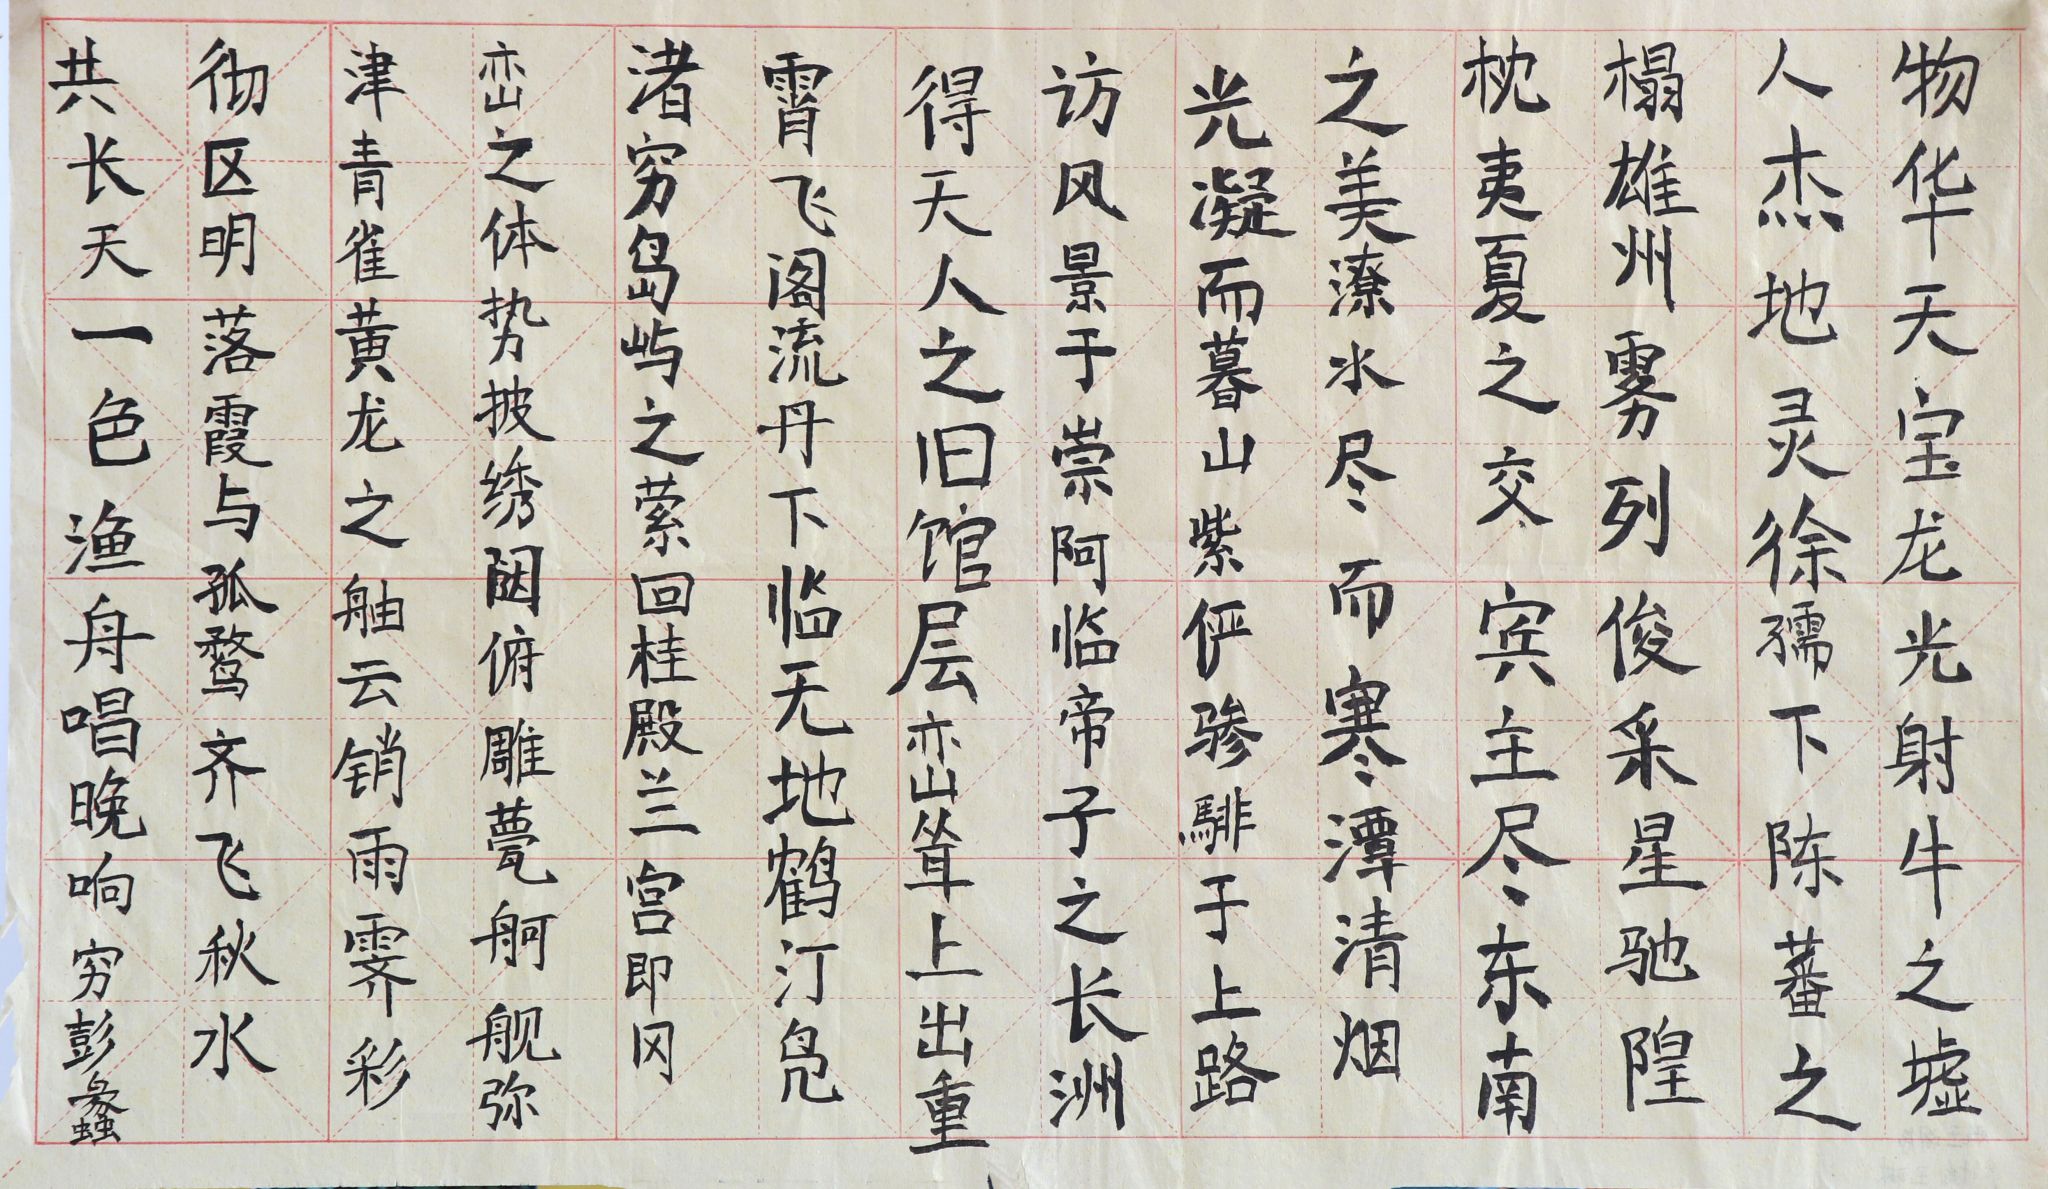 物华天宝龙光射牛之墟
人杰地灵徐孺下陈蕃之
榻雄州雾列俊采星驰隍
枕夷夏之交宾主尽东南
之美潦水尽而寒潭清烟
光凝而暮山紫俨骖騑于上路
访风景于崇阿临帝子之长洲
得天人之旧馆层峦耸上出重
霄飞阁流丹下临无地鹤汀凫
渚穷岛屿之萦回桂殿兰宫即冈
峦之体势披绣闼俯雕甍舸舰弥
津青雀黄龙之舳云销雨霁彩
彻区明落霞与孤鹜齐飞秋水
共长天一色渔舟唱晚响穷彭蠡